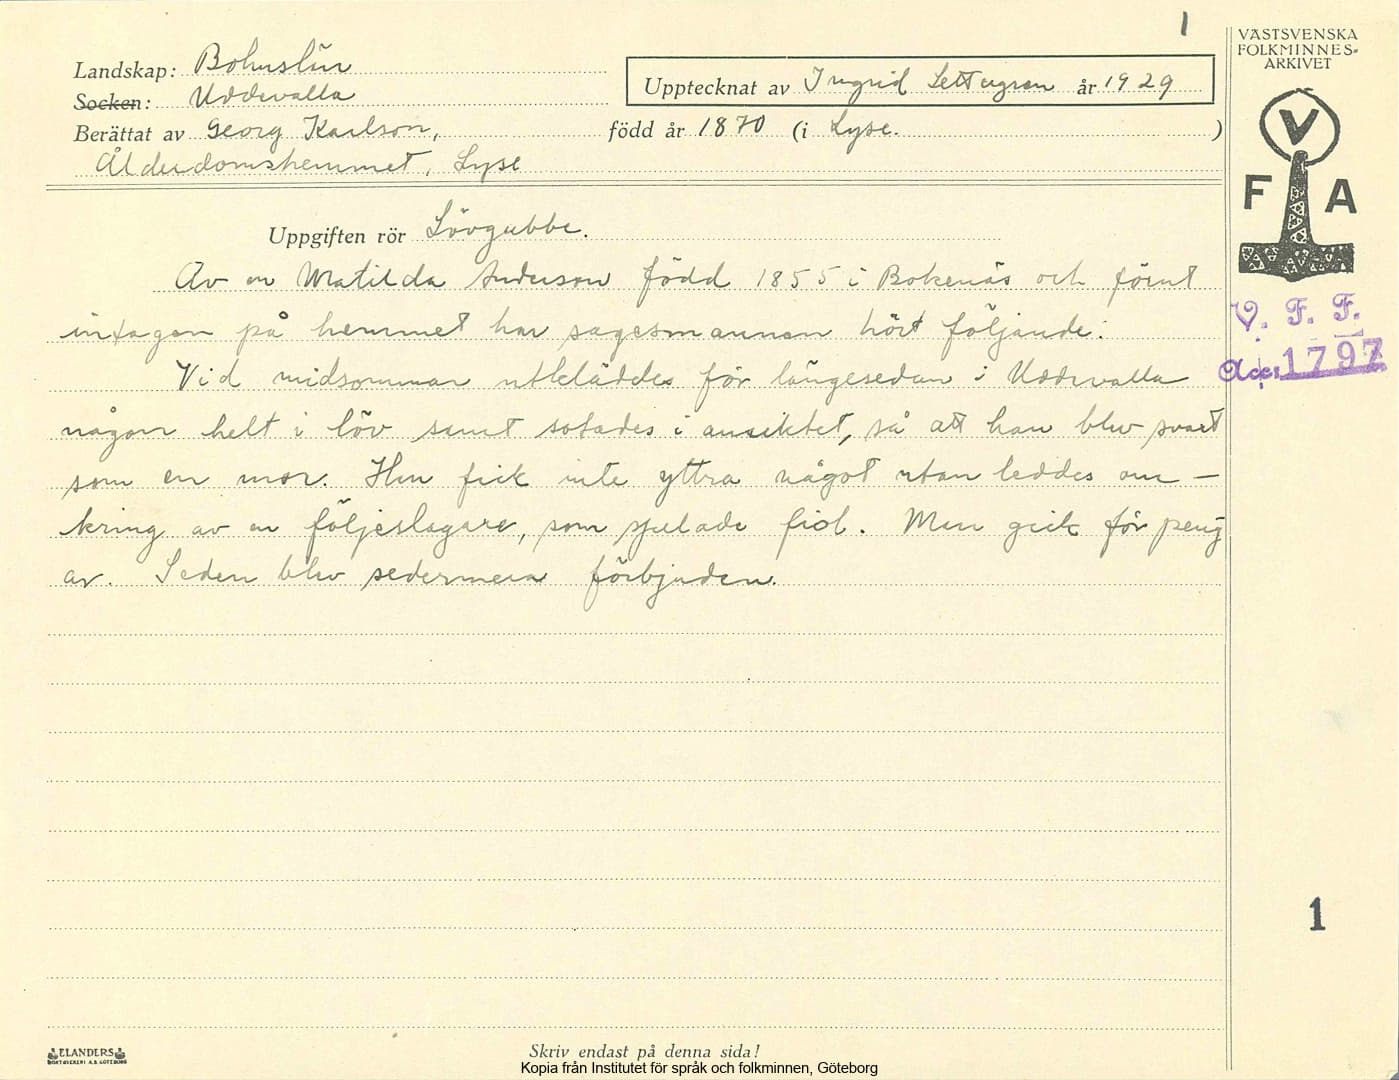 1
VÄSTSVENSKA
FOLKMINNES-
ARKIVET
Landskap: Bohuslän
Socken: Uddevalla
Upptecknat av Ingrid år 1929
Berättat av Georg Karlson, född år 1870 (i Lyse. )
Ålderdomshemmet, Lyse
V
F A
Uppgiften rör Lövgubbe.
Av en Matilda Anderson född 1855 i Bokenäs och förut
intagen på hemmet har sagesmannen hört följande:
V. F. F.
Acc: 1797
Vid midsommar utkläddes för längesedan i Uddevalla
någon helt i löv samt sotades i ansiktet, så att han blev svart
som en mor. Han fick inte yttra något utan leddes om-
kring av en följeslagare, som spelade fiol. Man gick för peng
ar. Seden blev sedermera förbjuden.
1
ELANDERS
BOKTRYCKERI A.B. GÖTEBORG
Skriv endast på denna sida!
Kopia från Institutet för språk och folkminnen, Göteborg